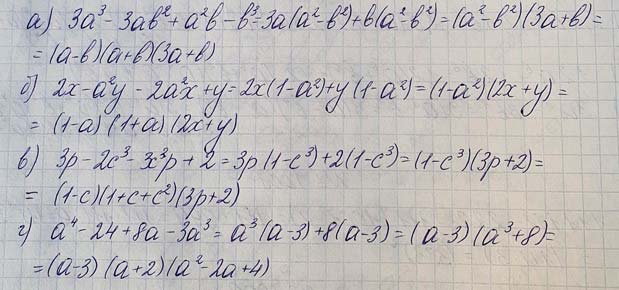 а) 3a³ - 3ab² + a²b - b³ = 3a(a² - b²) + b(a² - b²) = (a² - b²)(3a + b) =
= (a - b)(a + b)(3a + b)
б) 2x - a²y - 2a²x + y = 2x(1 - a²) + y(1 - a²) = (1 - a²)(2x + y) =
= (1 - a)(1 + a)(2x + y)
в) 3p - 2c³ - 3c³p + 2 = 3p(1 - c³) + 2(1 - c³) = (1 - c³)(3p + 2) =
= (1 - c)(1 + c + c²)(3p + 2)
г) a⁴ - 24 + 8a - 3a³ = a³(a - 3) + 8(a - 3) = (a - 3)(a³ + 8) =
= (a - 3)(a + 2)(a² - 2a + 4)